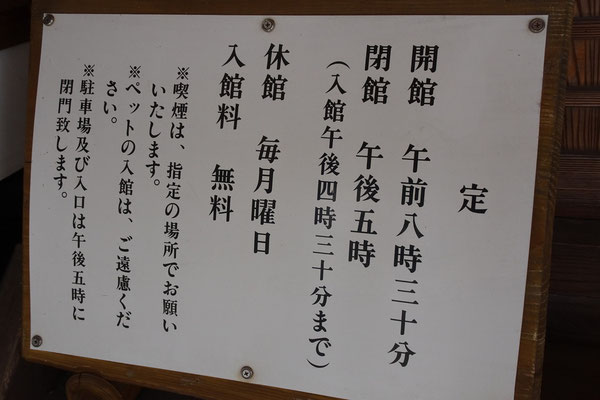 定
開館　午前八時三十分
閉館　午後五時
（入館午後四時三十分まで）
休館　毎月曜日
入館料　無料
※喫煙は、指定の場所でお願い
いたします。
※ペットの入館は、ご遠慮くだ
さい。
※駐車場及び入口は午後五時に
閉門致します。